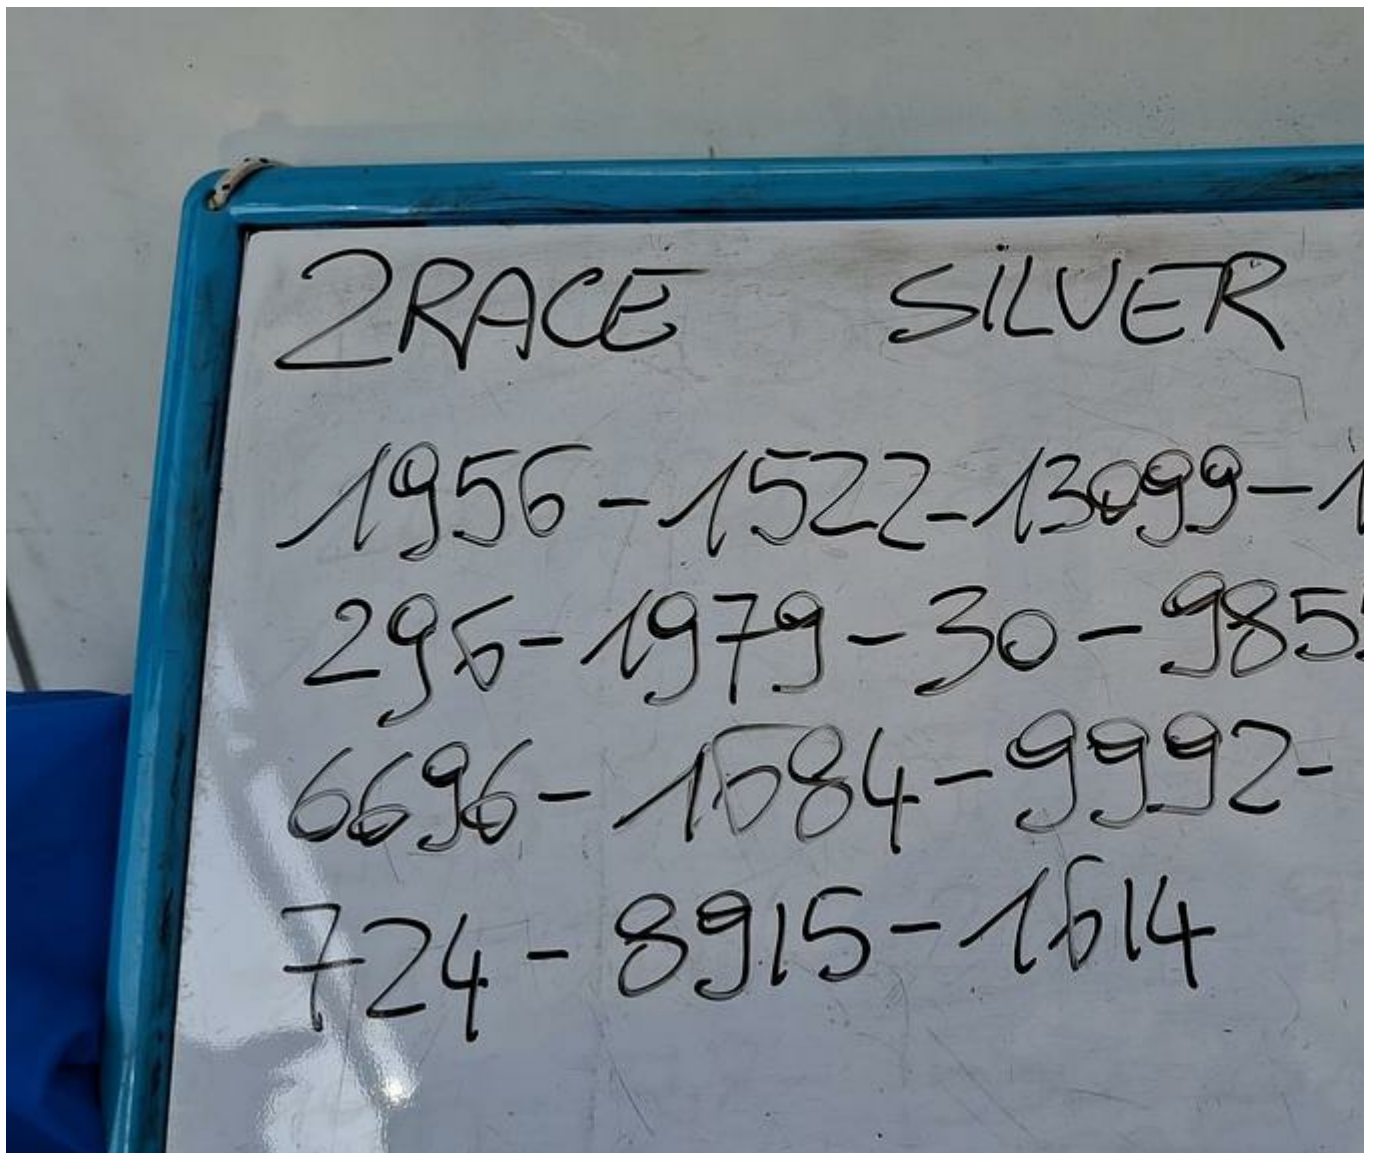 2RACE SiLVER
1956-1522-13099-1
296-1979-30-985
6696-1584-9992-
724-8915-1614